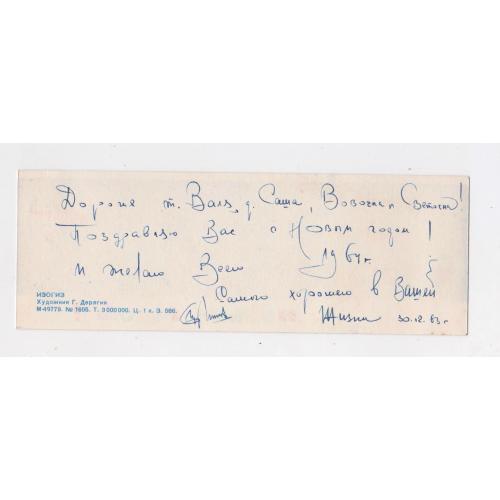 Дорогие т. Валя, д. Саша, Вовочка и Светочка!
Поздравляю Вас с Новым годом!
1964 г.
и желаю Всего
Самого хорошего в Вашей
Жизни 30.12.63 г.
ИЗОГИЗ
Художник Г. Дерягин
М-49779. № 1606. Т. 3000000. Ц. 1 к. З. 566.